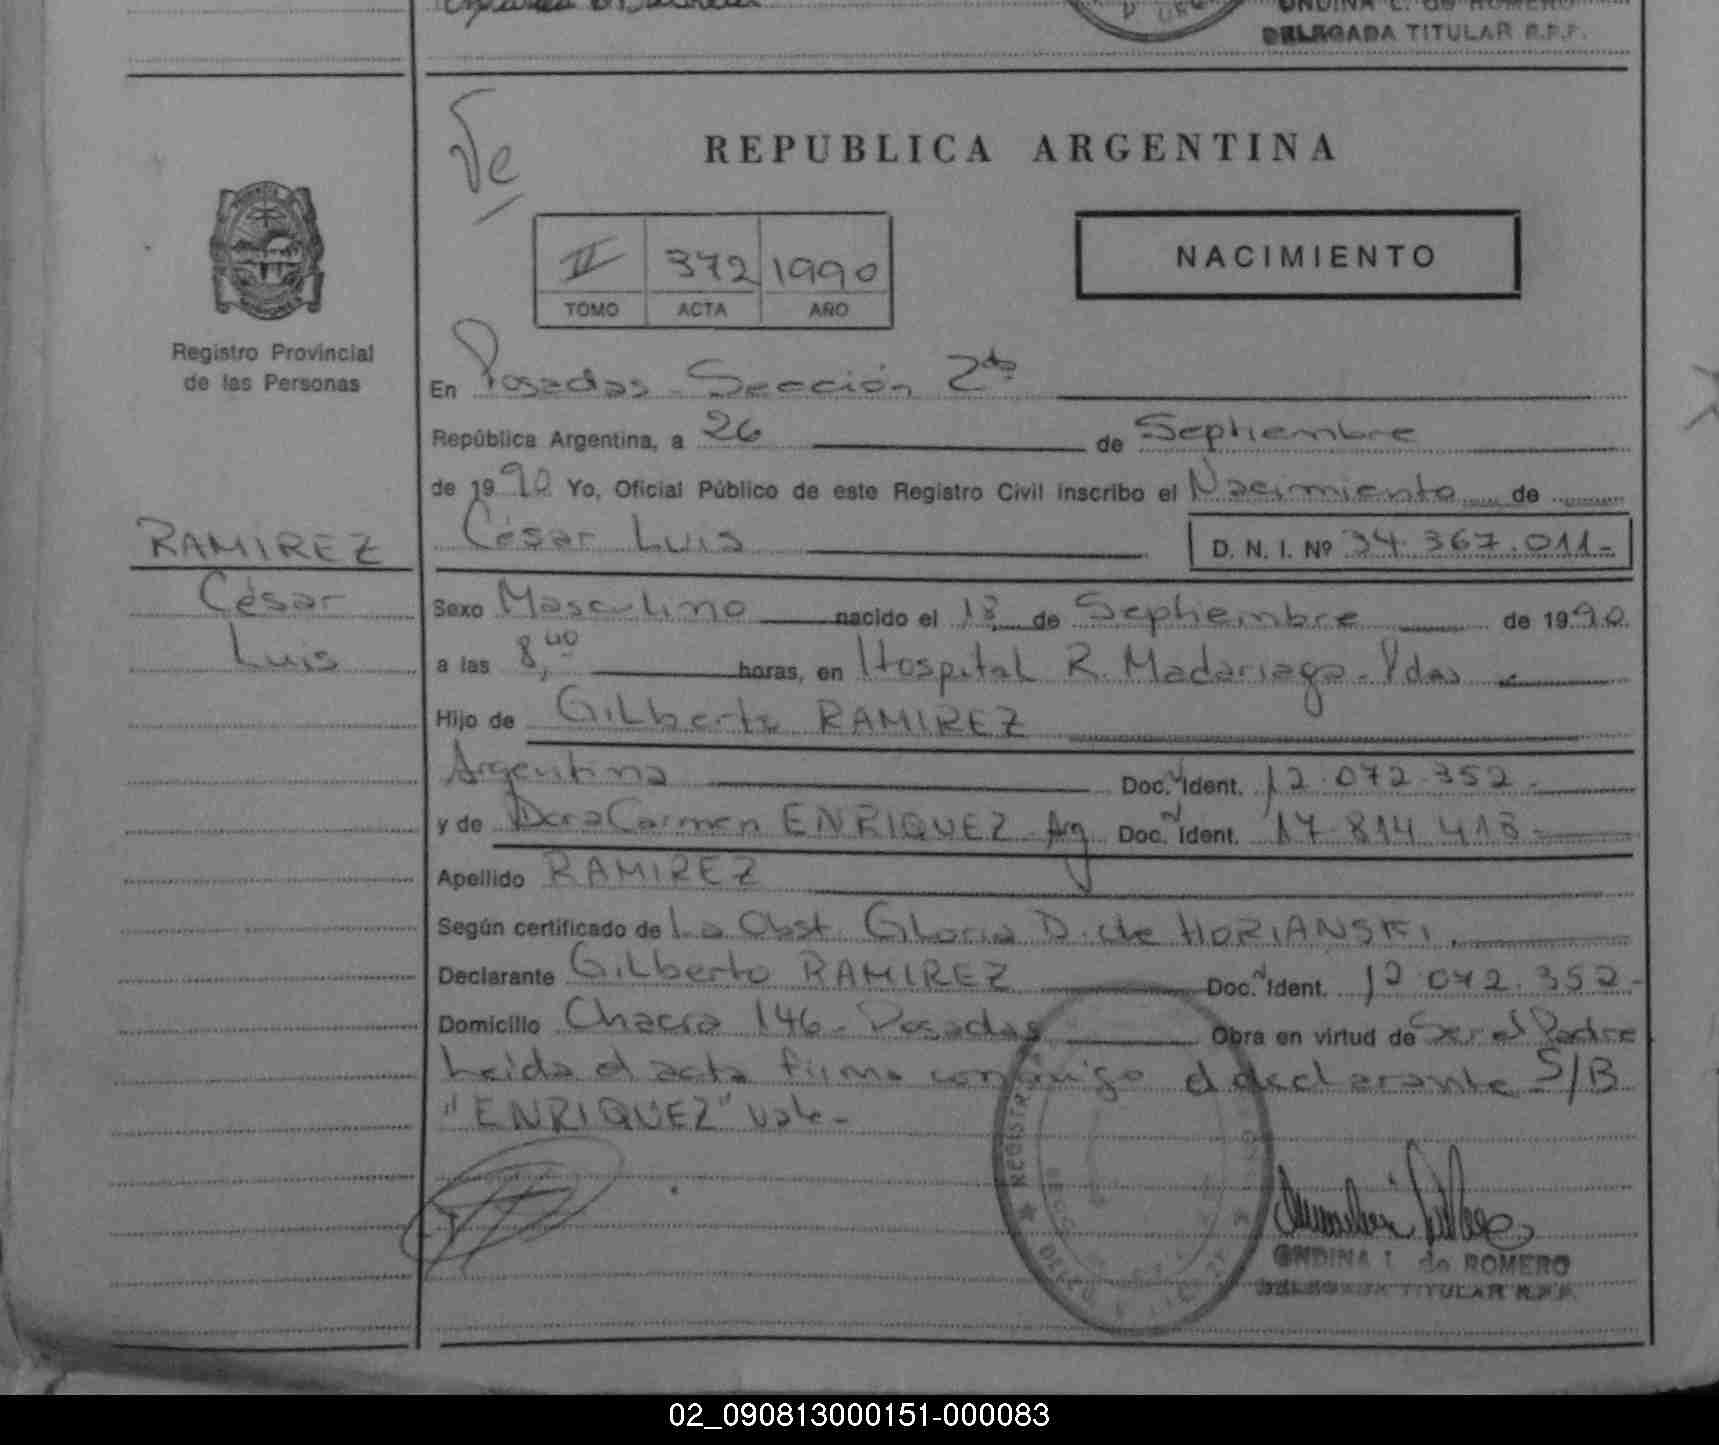 DELEGADA TITULAR R.P.P.
REPUBLICA ARGENTINA
NACIMIENTO
II 372 1990
TOMO ACTA AÑO
Registro Provincial
de las Personas
En Posadas - Sección 2da
República Argentina, a 26 de Septiembre
de 1990 Yo, Oficial Público de este Registro Civil inscribo el Nacimiento de
RAMIREZ
César Luis D. N. I. Nº 34.367.011-
César
Sexo Masculino nacido el 18 de Septiembre de 1990
Luis
a las 8,40 horas, en Hospital R. Madariaga - Pdas
Hijo de Gilberto RAMIREZ
Argentina Doc. Ident. 12.072.352-
y de Dora Carmen ENRIQUEZ - Arg Doc. Ident. 17.814.418-
Apellido RAMIREZ
Según certificado de La Obst. Gloria D. de HORIANSKI
Declarante Gilberto RAMIREZ Doc. Ident. 12.072.352-
Domicilio Chacra 146 - Posadas Obra en virtud de Ser el Padre
Leida el acta firma conmigo el declarante S/B
"ENRIQUEZ" vale-
ONDINA L. de ROMERO
DELEGADA TITULAR R.P.P.
02_090813000151-000083